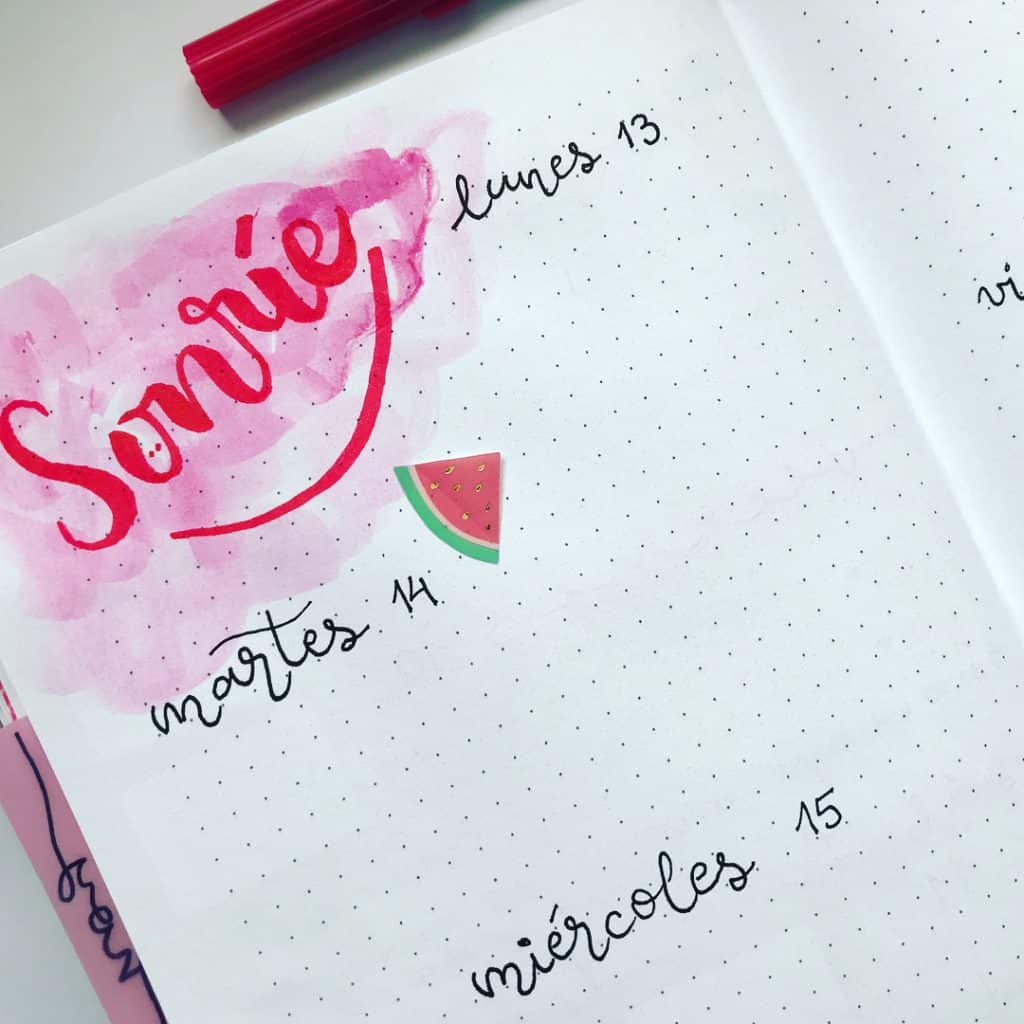 Sonríe
lunes 13
martes 14
miércoles 15
vi